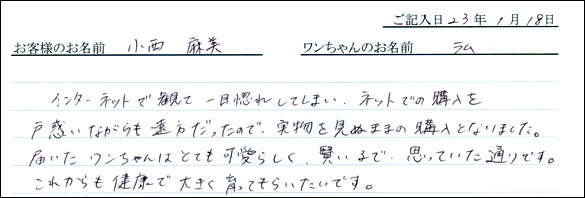 ご記入日 23年 1月 18日
お客様のお名前 小西 麻美 ワンちゃんのお名前 ラム
インターネットで観て一目惚れしてしまい、ネットでの購入を
戸惑いながらも遠方だったので、実物を見ぬままの購入となりました。
届いたワンちゃんはとても可愛らしく、賢いるで、思っていた通りです。
これからも健康で大きく育ってもらいたいです。